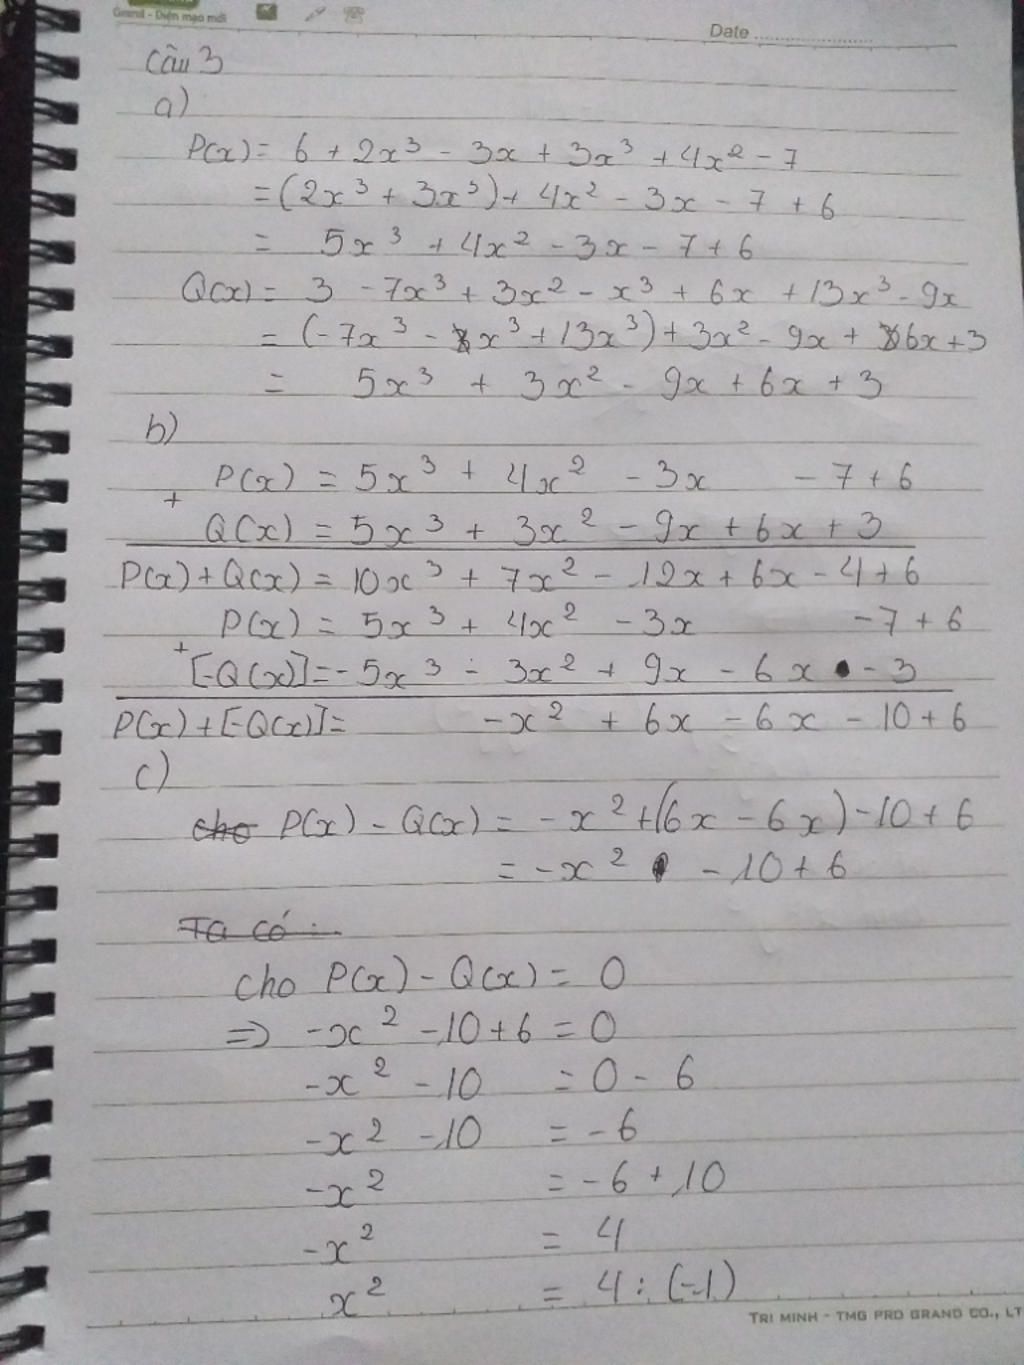 Grand - Diện mạo mới
Date
Câu 3
a)
P(x) = 6 + 2x³ - 3x + 3x³ + 4x² - 7
= (2x³ + 3x³) + 4x² - 3x - 7 + 6
= 5x³ + 4x² - 3x - 7 + 6
Q(x) = 3 - 7x³ + 3x² - x³ + 6x + 13x³ - 9x
= (-7x³ - x³ + 13x³) + 3x² - 9x + 6x + 3
= 5x³ + 3x² - 9x + 6x + 3
b)
P(x) = 5x³ + 4x² - 3x - 7 + 6
+
Q(x) = 5x³ + 3x² - 9x + 6x + 3
P(x) + Q(x) = 10x³ + 7x² - 12x + 6x - 4 + 6
P(x) = 5x³ + 4x² - 3x - 7 + 6
+
[-Q(x)] = - 5x³ - 3x² + 9x - 6x - 3
P(x) + [-Q(x)] = - x² + 6x - 6x - 10 + 6
c)
cho P(x) - Q(x) = - x² + (6x - 6x) - 10 + 6
= - x² - 10 + 6
Ta có :
cho P(x) - Q(x) = 0
=> - x² - 10 + 6 = 0
- x² - 10 = 0 - 6
- x² - 10 = - 6
- x² = - 6 + 10
- x² = 4
x² = 4 : (-1)
TRI MINH - TMG PRO GRAND CO., LT